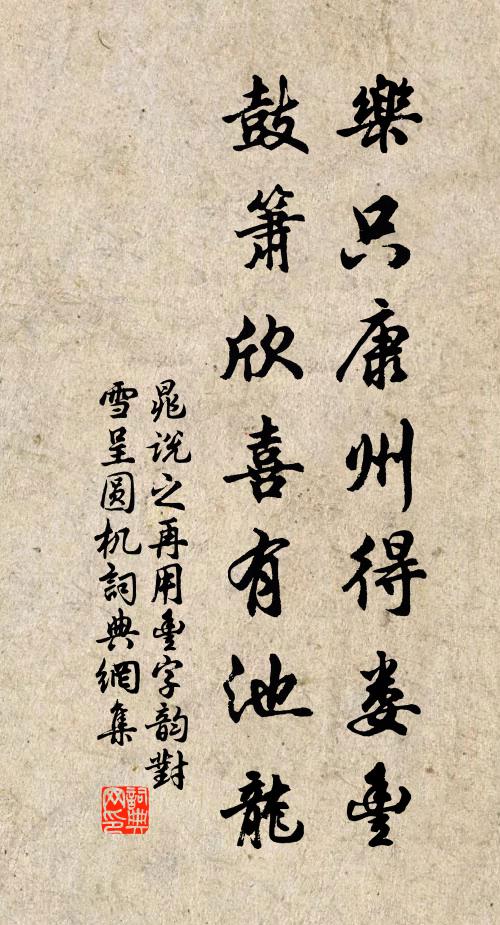 樂只康州得婁豐
鼓簫欣喜有池龍
晁説之再用豐字韵對
雪呈圆机詞典網集
詞典
网印